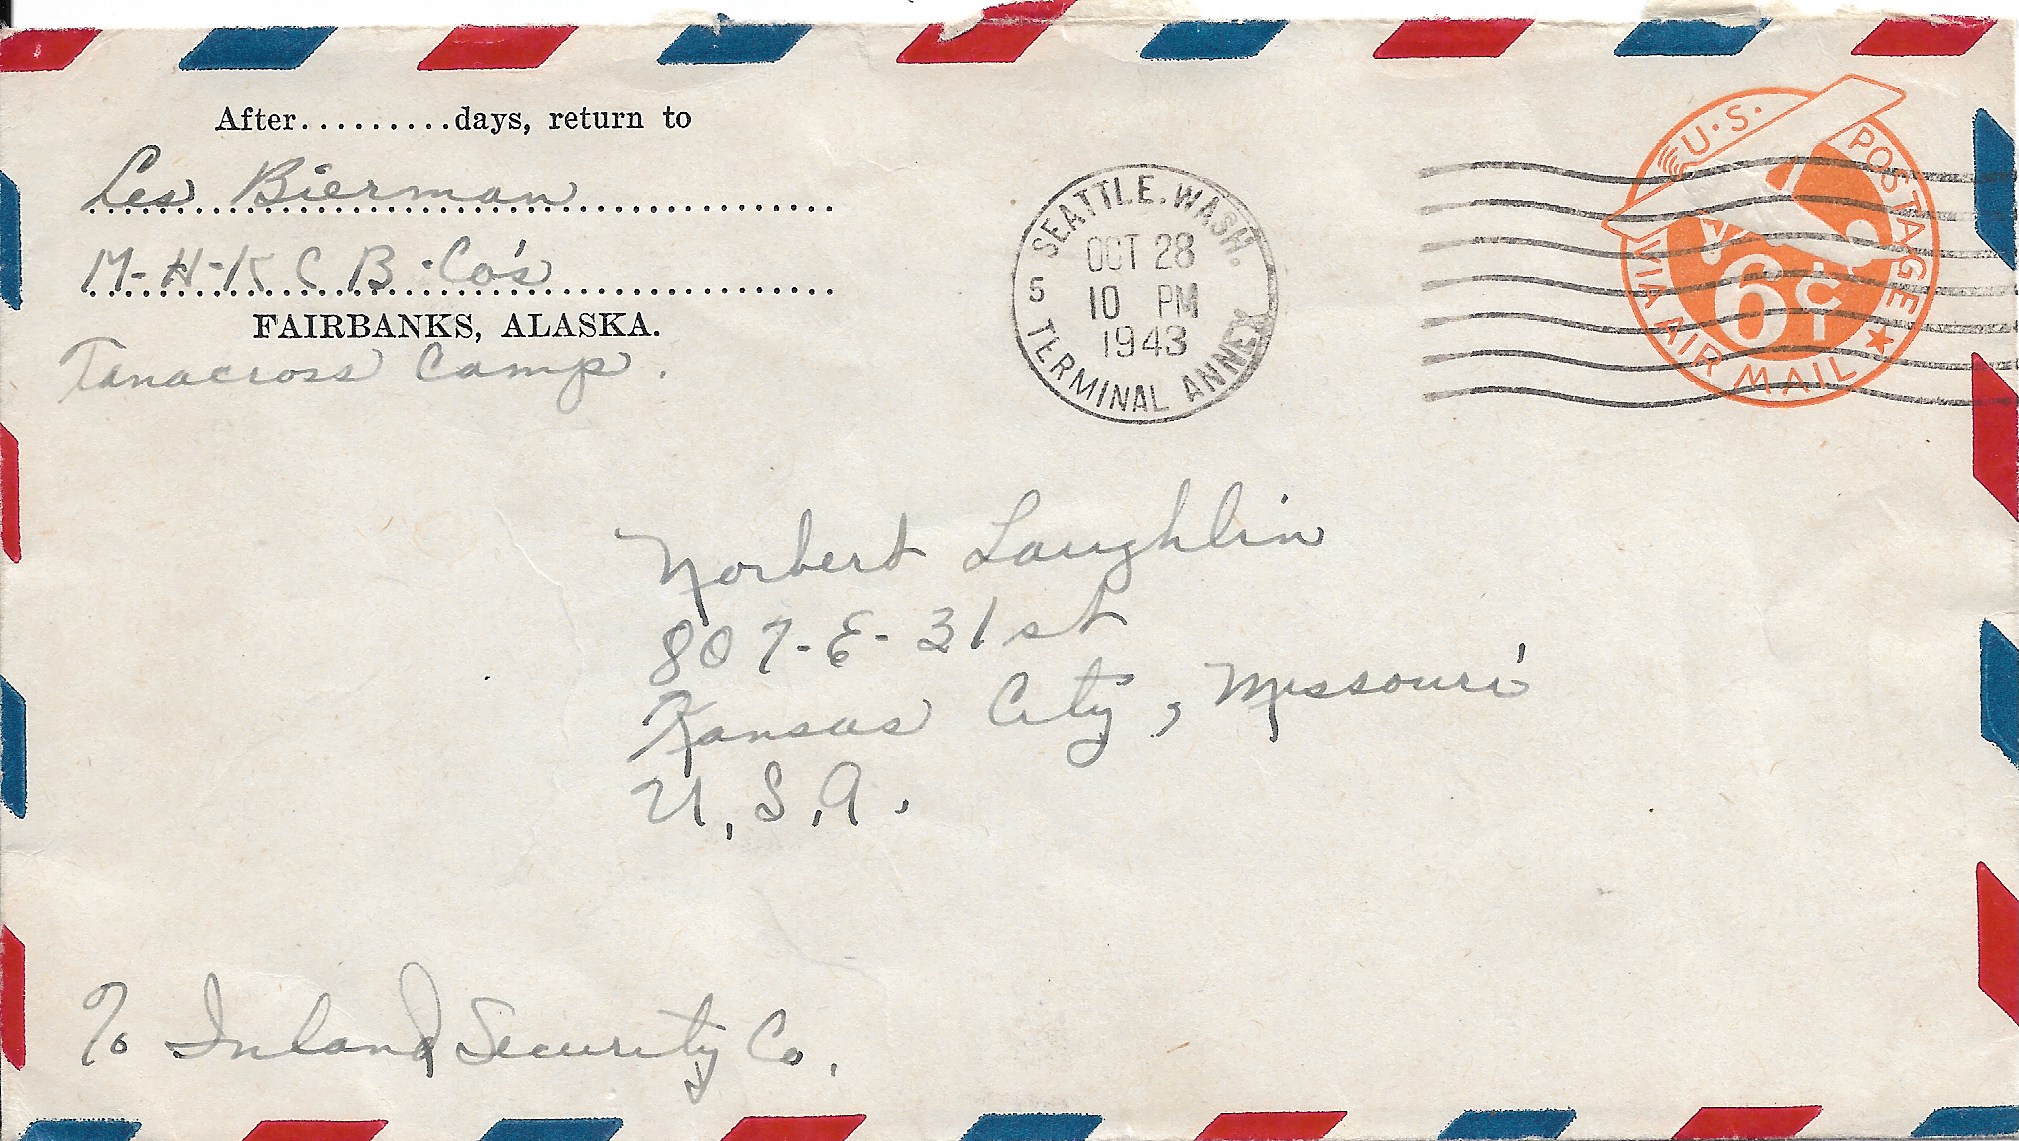 After.........days, return to
Les Bierman
M-H-K C B. Co's
FAIRBANKS, ALASKA.
Tanacross Camp.
SEATTLE, WASH.
OCT 28
10 PM
1943
5
TERMINAL ANNEX
U.S. POSTAGE
6¢
VIA AIR MAIL
Norbert Laughlin
807-E-31st
Kansas City, Missouri
U.S.A.
% Inland Security Co.